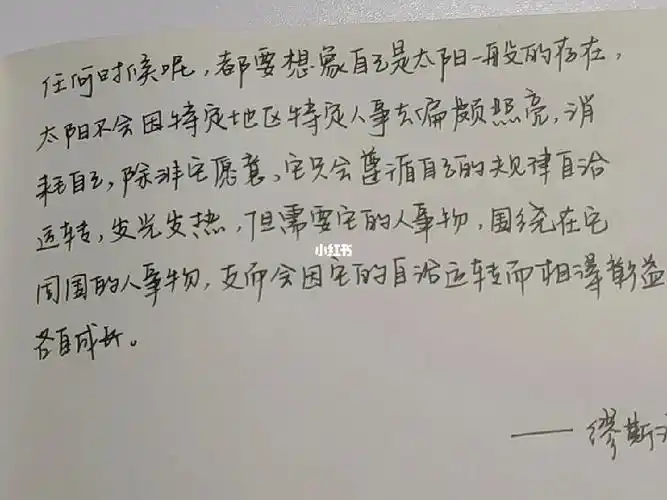 任何时候呢，都要想象自己是太阳一般的存在，
太阳不会因特定地区特定人事去偏颇照亮，消
耗自己，除非它愿意，它只会遵循自己的规律自洽
运转，发光发热，但需要它的人事物，围绕在它
周围的人事物，反而会因它的自洽运转而相泽彰益
各自成长。
小红书
——缪斯